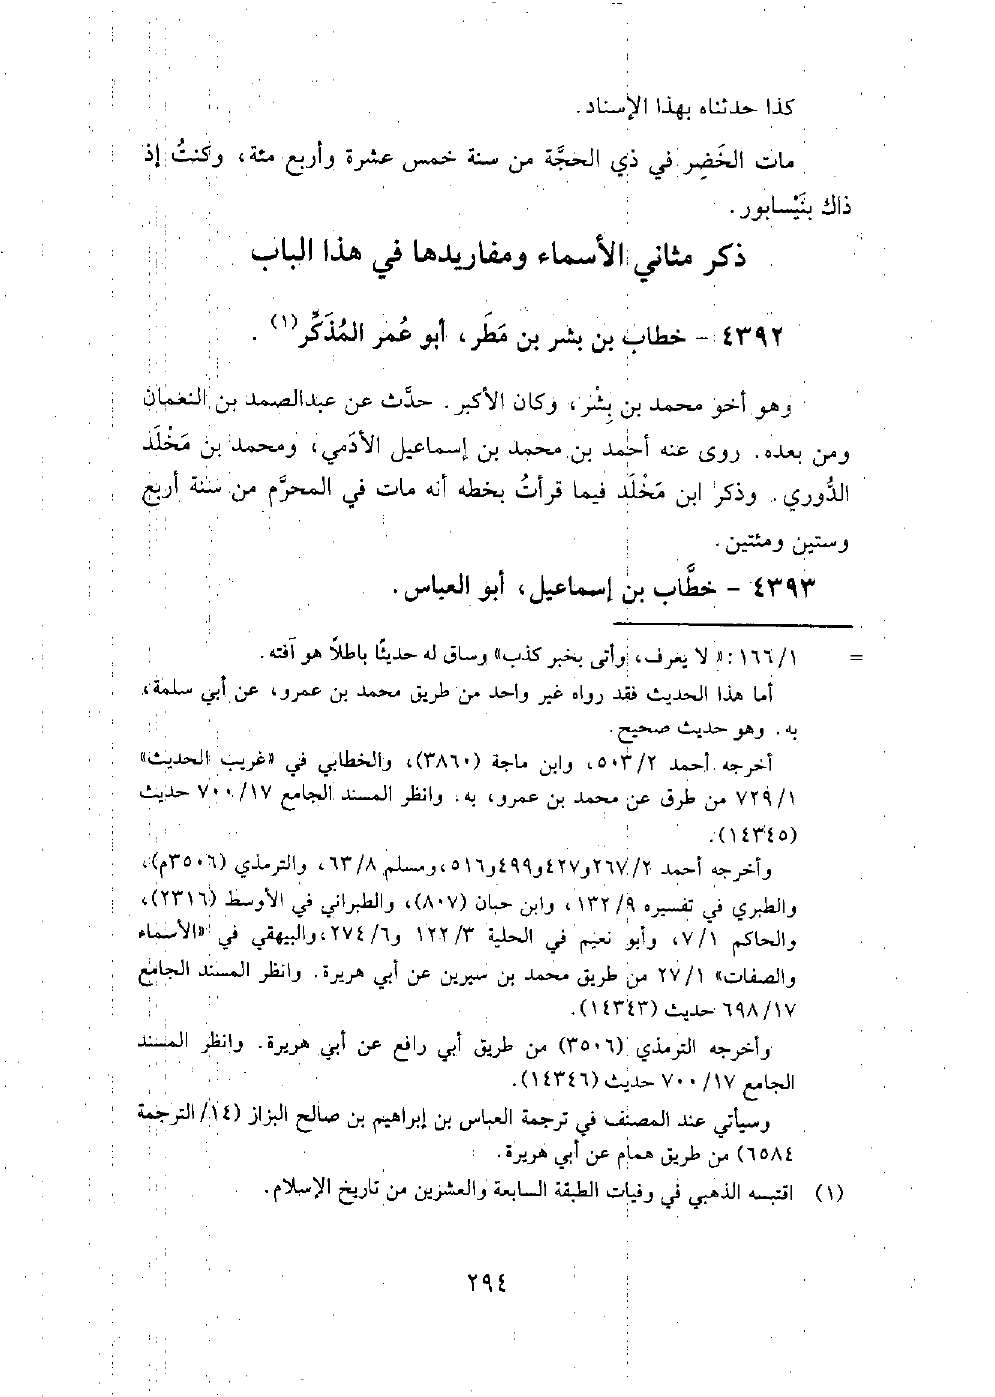 كذا حدثناه بهذا الإسناد.
مات الخَضِر في ذي الحجَّة من سنة خمس عشرة وأربع مئة، وكنتُ إذ
ذاك بنَيْسابور.
ذكر مثاني الأسماء ومفاريدها في هذا الباب
٤٣٩٢ - خطاب بن بشر بن مَطَر، أبو عُمر المُذَكِّر(١).
وهو أخو محمد بن بِشْر، وكان الأكبر. حدَّث عن عبدالصمد بن النعمان
ومن بعده. روى عنه أحمد بن محمد بن إسماعيل الأدَمي، ومحمد بن مَخْلَد
الدُّوري. وذكر ابن مَخْلَد فيما قرأتُ بخطه أنه مات في المحرَّم من سنة أربع
وستين ومئتين.
٤٣٩٣ - خطَّاب بن إسماعيل، أبو العباس.
= ١/ ١٦٦: «لا يعرف، وأتى بخبر كذب» وساق له حديثًا باطلًا هو آفته.
أما هذا الحديث فقد رواه غير واحد من طريق محمد بن عمرو، عن أبي سلمة،
به. وهو حديث صحيح.
أخرجه أحمد ٢/ ٥٠٣، وابن ماجة (٣٨٦٠)، والخطابي في «غريب الحديث»
١/ ٧٢٩ من طرق عن محمد بن عمرو، به. وانظر المسند الجامع ١٧/ ٧٠٠ حديث
(١٤٣٤٥).
وأخرجه أحمد ٢/ ٢٦٧ و٤٢٧ و٤٩٩ و٥١٦، ومسلم ٨/ ٦٣، والترمذي (٣٥٠٦م)،
والطبري في تفسيره ٩/ ١٣٢، وابن حبان (٨٠٧)، والطبراني في الأوسط (٢٣١٦)،
والحاكم ١/ ٧، وأبو نعيم في الحلية ٣/ ١٢٢ و٦/ ٢٧٤، والبيهقي في «الأسماء
والصفات» ١/ ٢٧ من طريق محمد بن سيرين عن أبي هريرة. وانظر المسند الجامع
١٧/ ٦٩٨ حديث (١٤٣٤٣).
وأخرجه الترمذي (٣٥٠٦) من طريق أبي رافع عن أبي هريرة. وانظر المسند
الجامع ١٧/ ٧٠٠ حديث (١٤٣٤٦).
وسيأتي عند المصنف في ترجمة العباس بن إبراهيم بن صالح البزاز (١٤/ الترجمة
٦٥٨٤) من طريق همام عن أبي هريرة.
(١) اقتبسه الذهبي في وفيات الطبقة السابعة والعشرين من تاريخ الإسلام.
٢٩٤